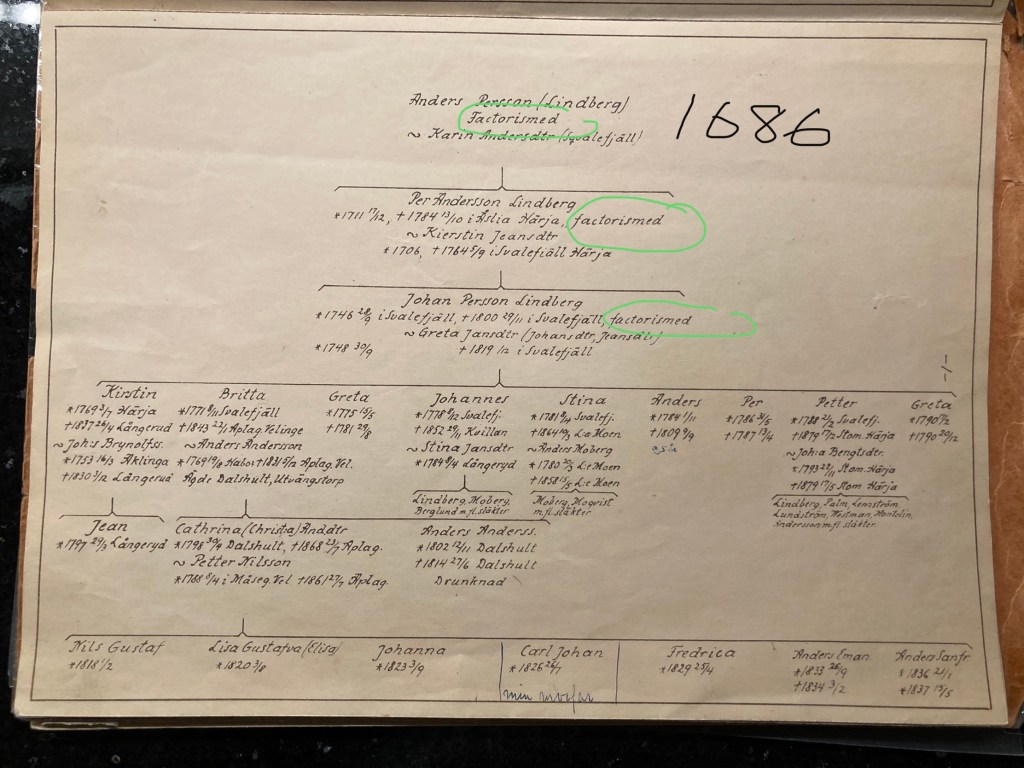 Anders Persson (Lindberg)
Factorismed
~ Karin Andersdtr (Svalefjäll)
1686
Per Andersson Lindberg
*1711 17/12, +1784 13/10 i Åslia Härja, factorismed
~ Kierstin Jeansdtr
*1706, +1764 5/9 i Svalefjäll Härja
Johan Persson Lindberg
*1746 28/9 i Svalefjäll, +1800 29/11 i Svalefjäll, factorismed
~ Greta Jansdtr (Johansdtr, Jeansdtr)
*1748 30/9 +1819 1/12 i Svalefjäll
Kirstin
*1769 3/7 Härja
+1837 24/4 Långeryd
~ Joh:s Brynolfss.
*1753 16/3 Åklinga
+1830 3/12 Långeryd
Britta
*1771 9/11 Svalefjäll
+1843 22/1 Aplag. Velinge
~ Anders Andersson
*1769 19/8 Habo, +1831 2/12 Aplag. Vel.
Ägde Dalshult, Utvängstorp
Greta
*1775 15/5
+1781 29/8
Johannes
*1778 8/12 Svalefj.
+1852 29/11 Kvillan
~ Stina Jansdtr
*1784 9/4 Långeryd
Lindberg, Moberg,
Berglund m.fl. släkter
Stina
*1781 9/4 Svalefj.
+1864 19/3 L:e Moen
~ Anders Moberg
*1780 20/3 L:e Moen
+1858 15/5 L:e Moen
Moberg, Moqvist
m.fl. släkter
Anders
*1784 1/11
+1809 9/9
Per
*1786 31/5
+1787 13/4
Petter
*1788 21/2 Svalefj.
+1879 17/2 Stom. Härja
~ Joh:a Bengtsdtr.
*1793 28/11 Stom. Härja
+1879 17/5 Stom. Härja
Lindberg, Palm, Lernström,
Lundström, Westman, Hontelin,
Andersson m.fl. släkter.
Greta
*1790 7/2
+1790 29/12
-/-
Jean
*1797 29/3 Långeryd
Cathrina (Christa) And:dtr
*1798 30/9 Dalshult, +1868 23/7 Aplag.
~ Petter Nilsson
*1788 5/4 i Måseg. Vel +1861 27/7 Aplag.
Anders Anderss.
*1802 12/11 Dalshult
+1814 27/6 Dalshult
Drunknad
Nils Gustaf
*1818 1/2
Lisa Gustafva (Elisa)
*1820 3/8
Johanna
*1823 3/9
Carl Johan
*1826 26/7
min morfar
Fredrica
*1829 25/4
Anders Eman.
*1833 26/9
+1834 3/2
Anders Sanfr.
*1836 21/1
*1837 15/5